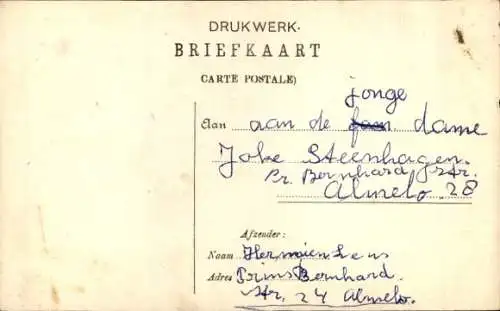 DRUKWERK.
BRIEFKAART
CARTE POSTALE)
jonge
Aan aan de dame
Joke Steenhagen.
Pr. Bernhard str.
Almelo. 28
Afzender:
Naam Hermien Lens
Adres Prins Bernhard.
str. 24 Almelo.